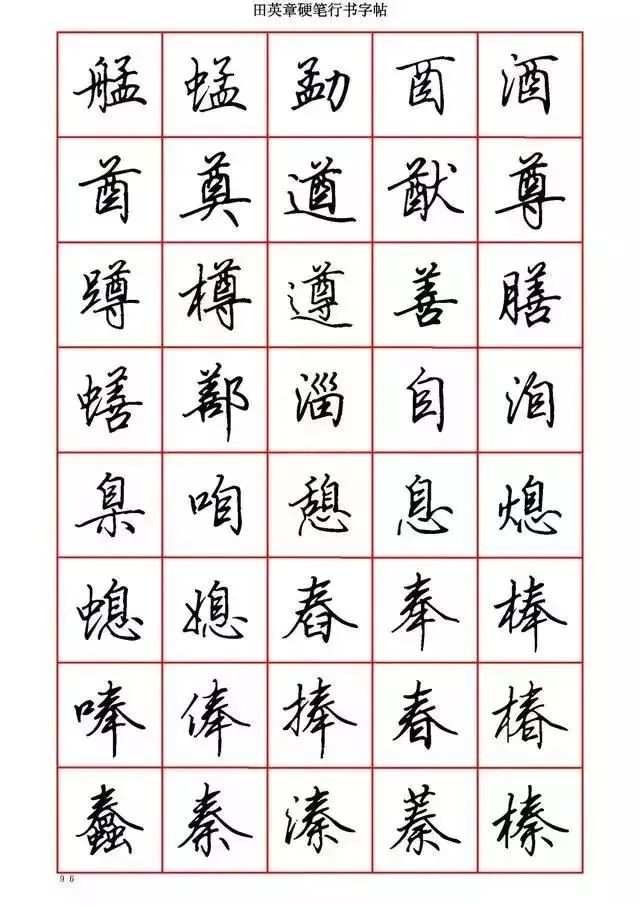 田英章硬笔行书字帖
艋 蜢 勐 酉 酒
酋 奠 遒 猷 尊
蹲 樽 遵 善 膳
蟮 鄯 淄 自 洎
臬 咱 憩 息 熄
螅 媳 舂 奉 棒
唪 俸 捧 春 椿
蠢 秦 溱 蓁 榛
96